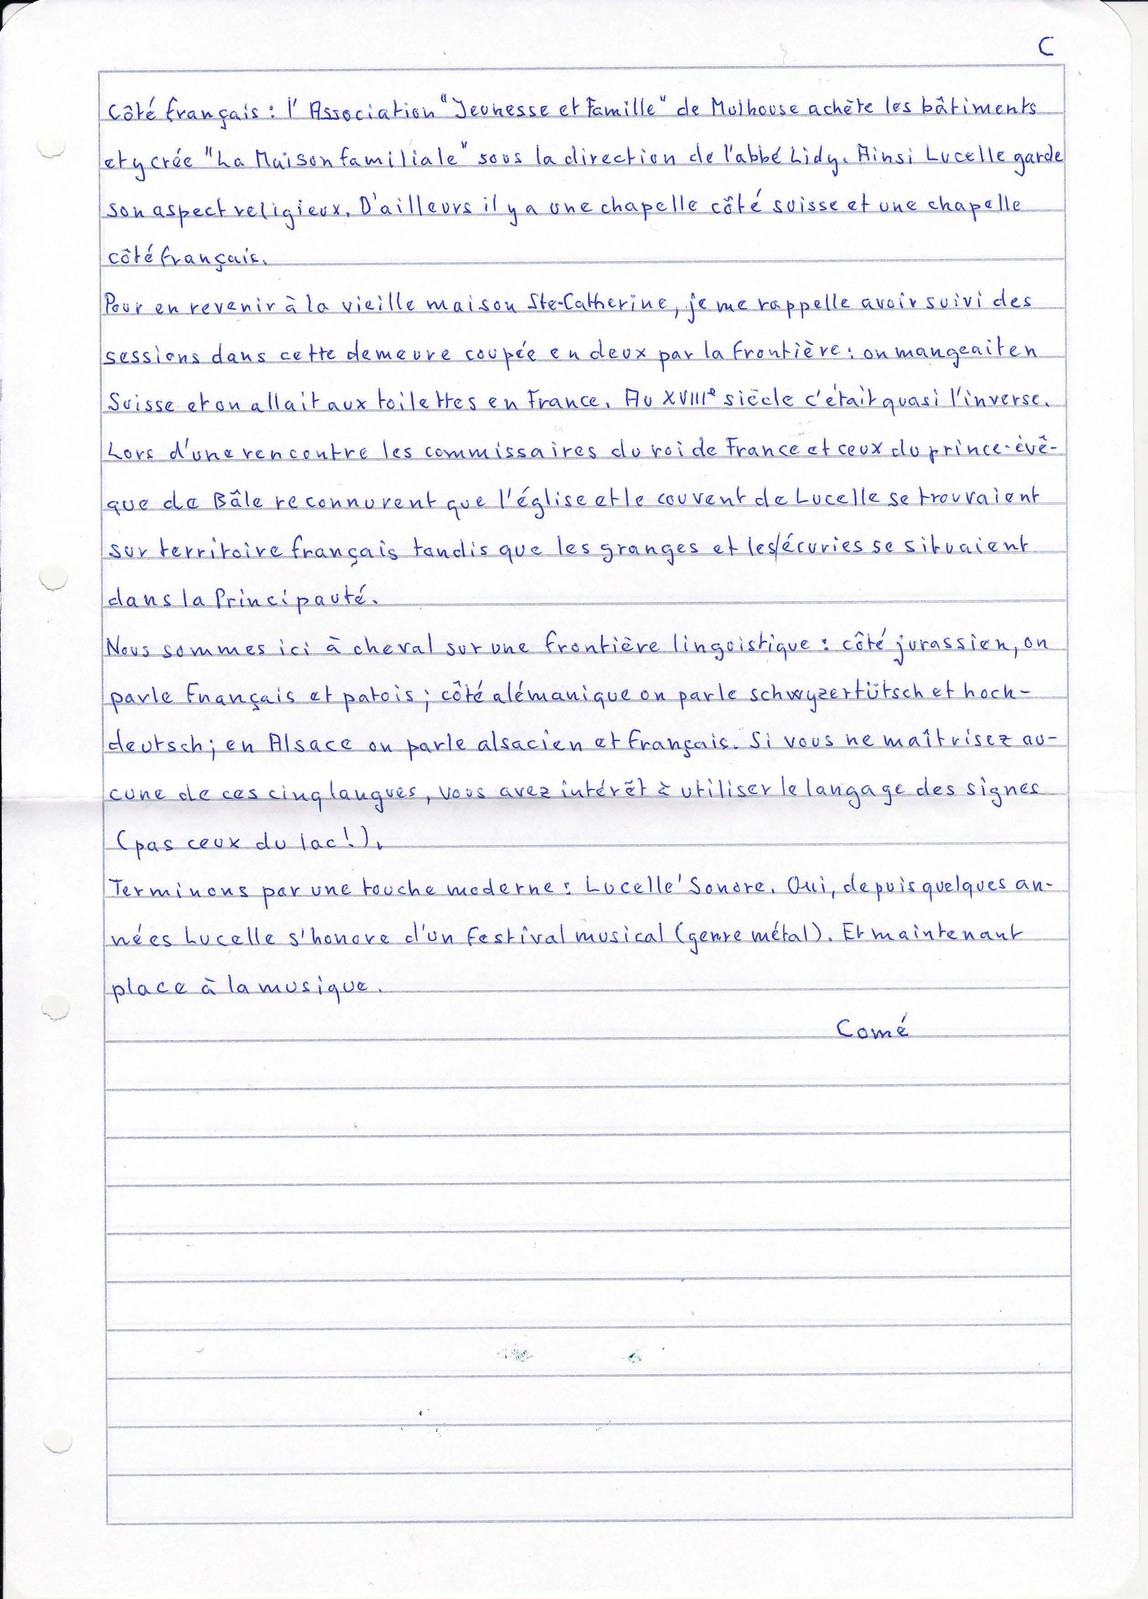 C
Côté français : l'Association "Jeunesse et Famille" de Mulhouse achète les bâtiments
et y crée "La Maison familiale" sous la direction de l'abbé Lidy. Ainsi Lucelle garde
son aspect religieux. D'ailleurs il y a une chapelle côté suisse et une chapelle
côté français.
Pour en revenir à la vieille maison Ste-Catherine, je me rappelle avoir suivi des
sessions dans cette demeure coupée en deux par la frontière : on mangeait en
Suisse et on allait aux toilettes en France. Au XVIIIe siècle c'était quasi l'inverse.
Lors d'une rencontre les commissaires du roi de France et ceux du prince-évê-
que de Bâle reconnurent que l'église et le couvent de Lucelle se trouvaient
sur territoire français tandis que les granges et les/écuries se situaient
dans la Principauté.
Nous sommes ici à cheval sur une frontière linguistique : côté jurassien, on
parle français et patois ; côté alémanique on parle schwyzertütsch et hoch-
deutsch ; en Alsace on parle alsacien et français. Si vous ne maîtrisez au-
cune de ces cinq langues, vous avez intérêt à utiliser le langage des signes
(pas ceux du lac !).
Terminons par une touche moderne : Lucelle'Sonore. Oui, depuis quelques an-
nées Lucelle s'honore d'un festival musical (genre métal). Et maintenant
place à la musique.
Comé